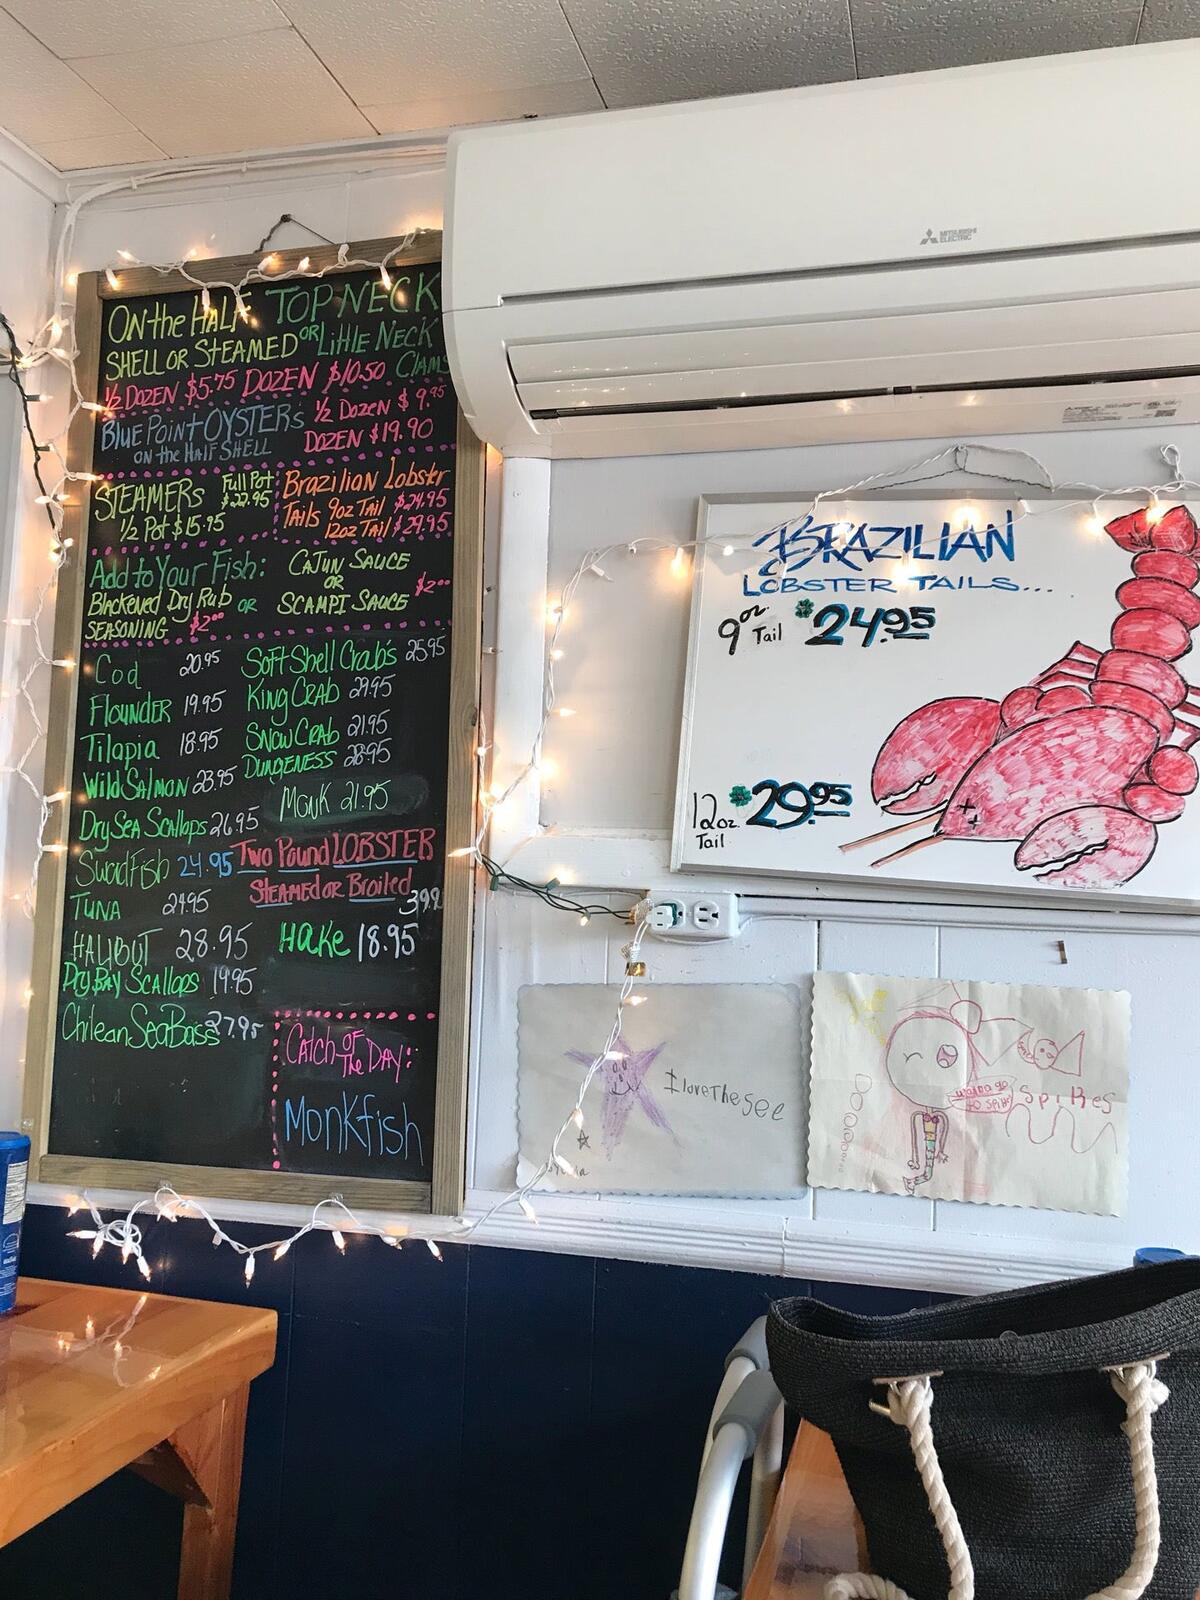 ON the HALF TOP NECK
SHELL OR STEAMED OR LittlE NECK
1/2 DOZEN $5.75 DOZEN $10.50 CLAMS
BLUE POINT OYSTERS 1/2 DOZEN $9.95
ON the HALF SHELL DOZEN $19.90
STEAMERS Full Pot $22.95
1/2 Pot $15.95
Brazilian Lobster
TAILS 9oz TAIL $24.95
12oz TAIL $29.95
Add to Your Fish:
Blackened Dry Rub OR
SEASONING $2.00
CAJUN SAUCE
OR
SCAMPI SAUCE $2.00
Cod 20.95
Flounder 19.95
Tilapia 18.95
Wild Salmon 23.95
Dry Sea Scallops 26.95
Swordfish 24.95
TUNA 24.95
HALIBUT 28.95
Dry Bay Scallops 19.95
Chilean Sea Bass 27.95
Soft Shell Crab's 25.95
King CRAB 29.95
SNOW CRAB 21.95
DUNGENESS 28.95
Monk 21.95
Two Pound LOBSTER
STEAMED OR Broiled
HaKe 18.95
Catch OF The DAY:
Monkfish
MITSUBISHI
ELECTRIC
BRAZILIAN
LOBSTER TAILS...
9oz. Tail $24.95
12oz. Tail $29.95
I love The see
wanna go
to spikes
SpiKes